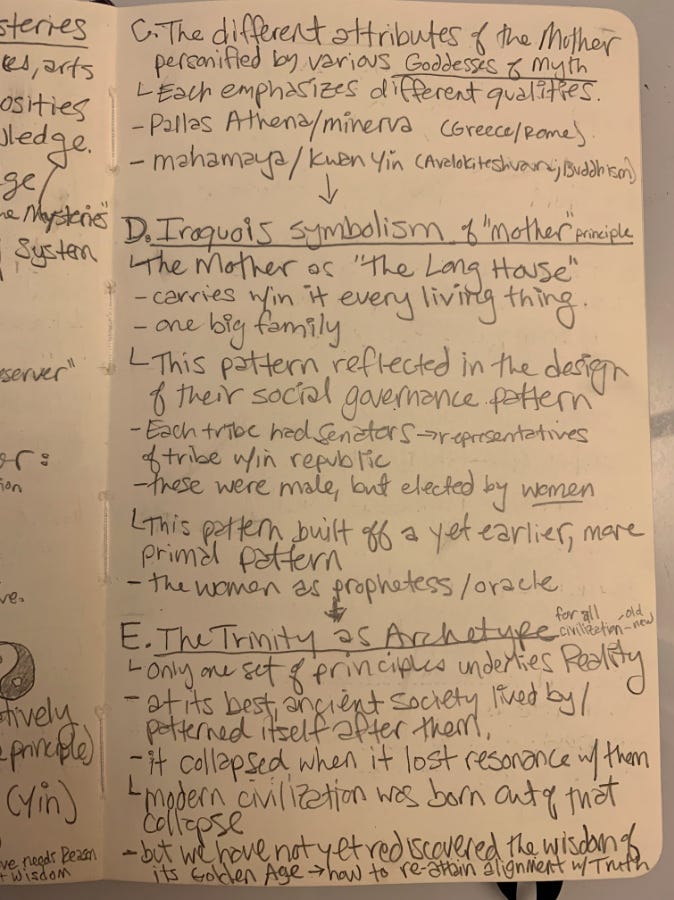 steries
es, arts
osities
wledge.
ge
e Mysteries"
System
server"
or:
ion
ve.
tively
principle)
(Yin)
ve needs Reason
+ Wisdom
C. The different attributes of the Mother
personified by various Goddesses of Myth
└ Each emphasizes different qualities.
- Pallas Athena/minerva (Greece/Rome)
- mahamaya/Kwan Yin (Avalokiteshvara; Buddhism)
↓
D. Iroquois symbolism of "Mother" principle
└ The Mother as "The Long House"
- carries w/in it every living thing.
- one big family
└ This pattern reflected in the design
of their social governance pattern
- Each tribe had Senators → representatives
of tribe w/in republic
- these were male, but elected by women
└ This pattern built off a yet earlier, more
primal pattern
- the women as prophetess/oracle
↓
E. The Trinity as Archetype for all civilization - old - new
└ Only one set of principles underlies Reality
- at its best, ancient society lived by/
patterned itself after them.
- it collapsed when it lost resonance w/ them
└ modern civilization was born out of that
collapse
- but we have not yet rediscovered the wisdom of
its Golden Age → how to re-attain alignment w/ Truth